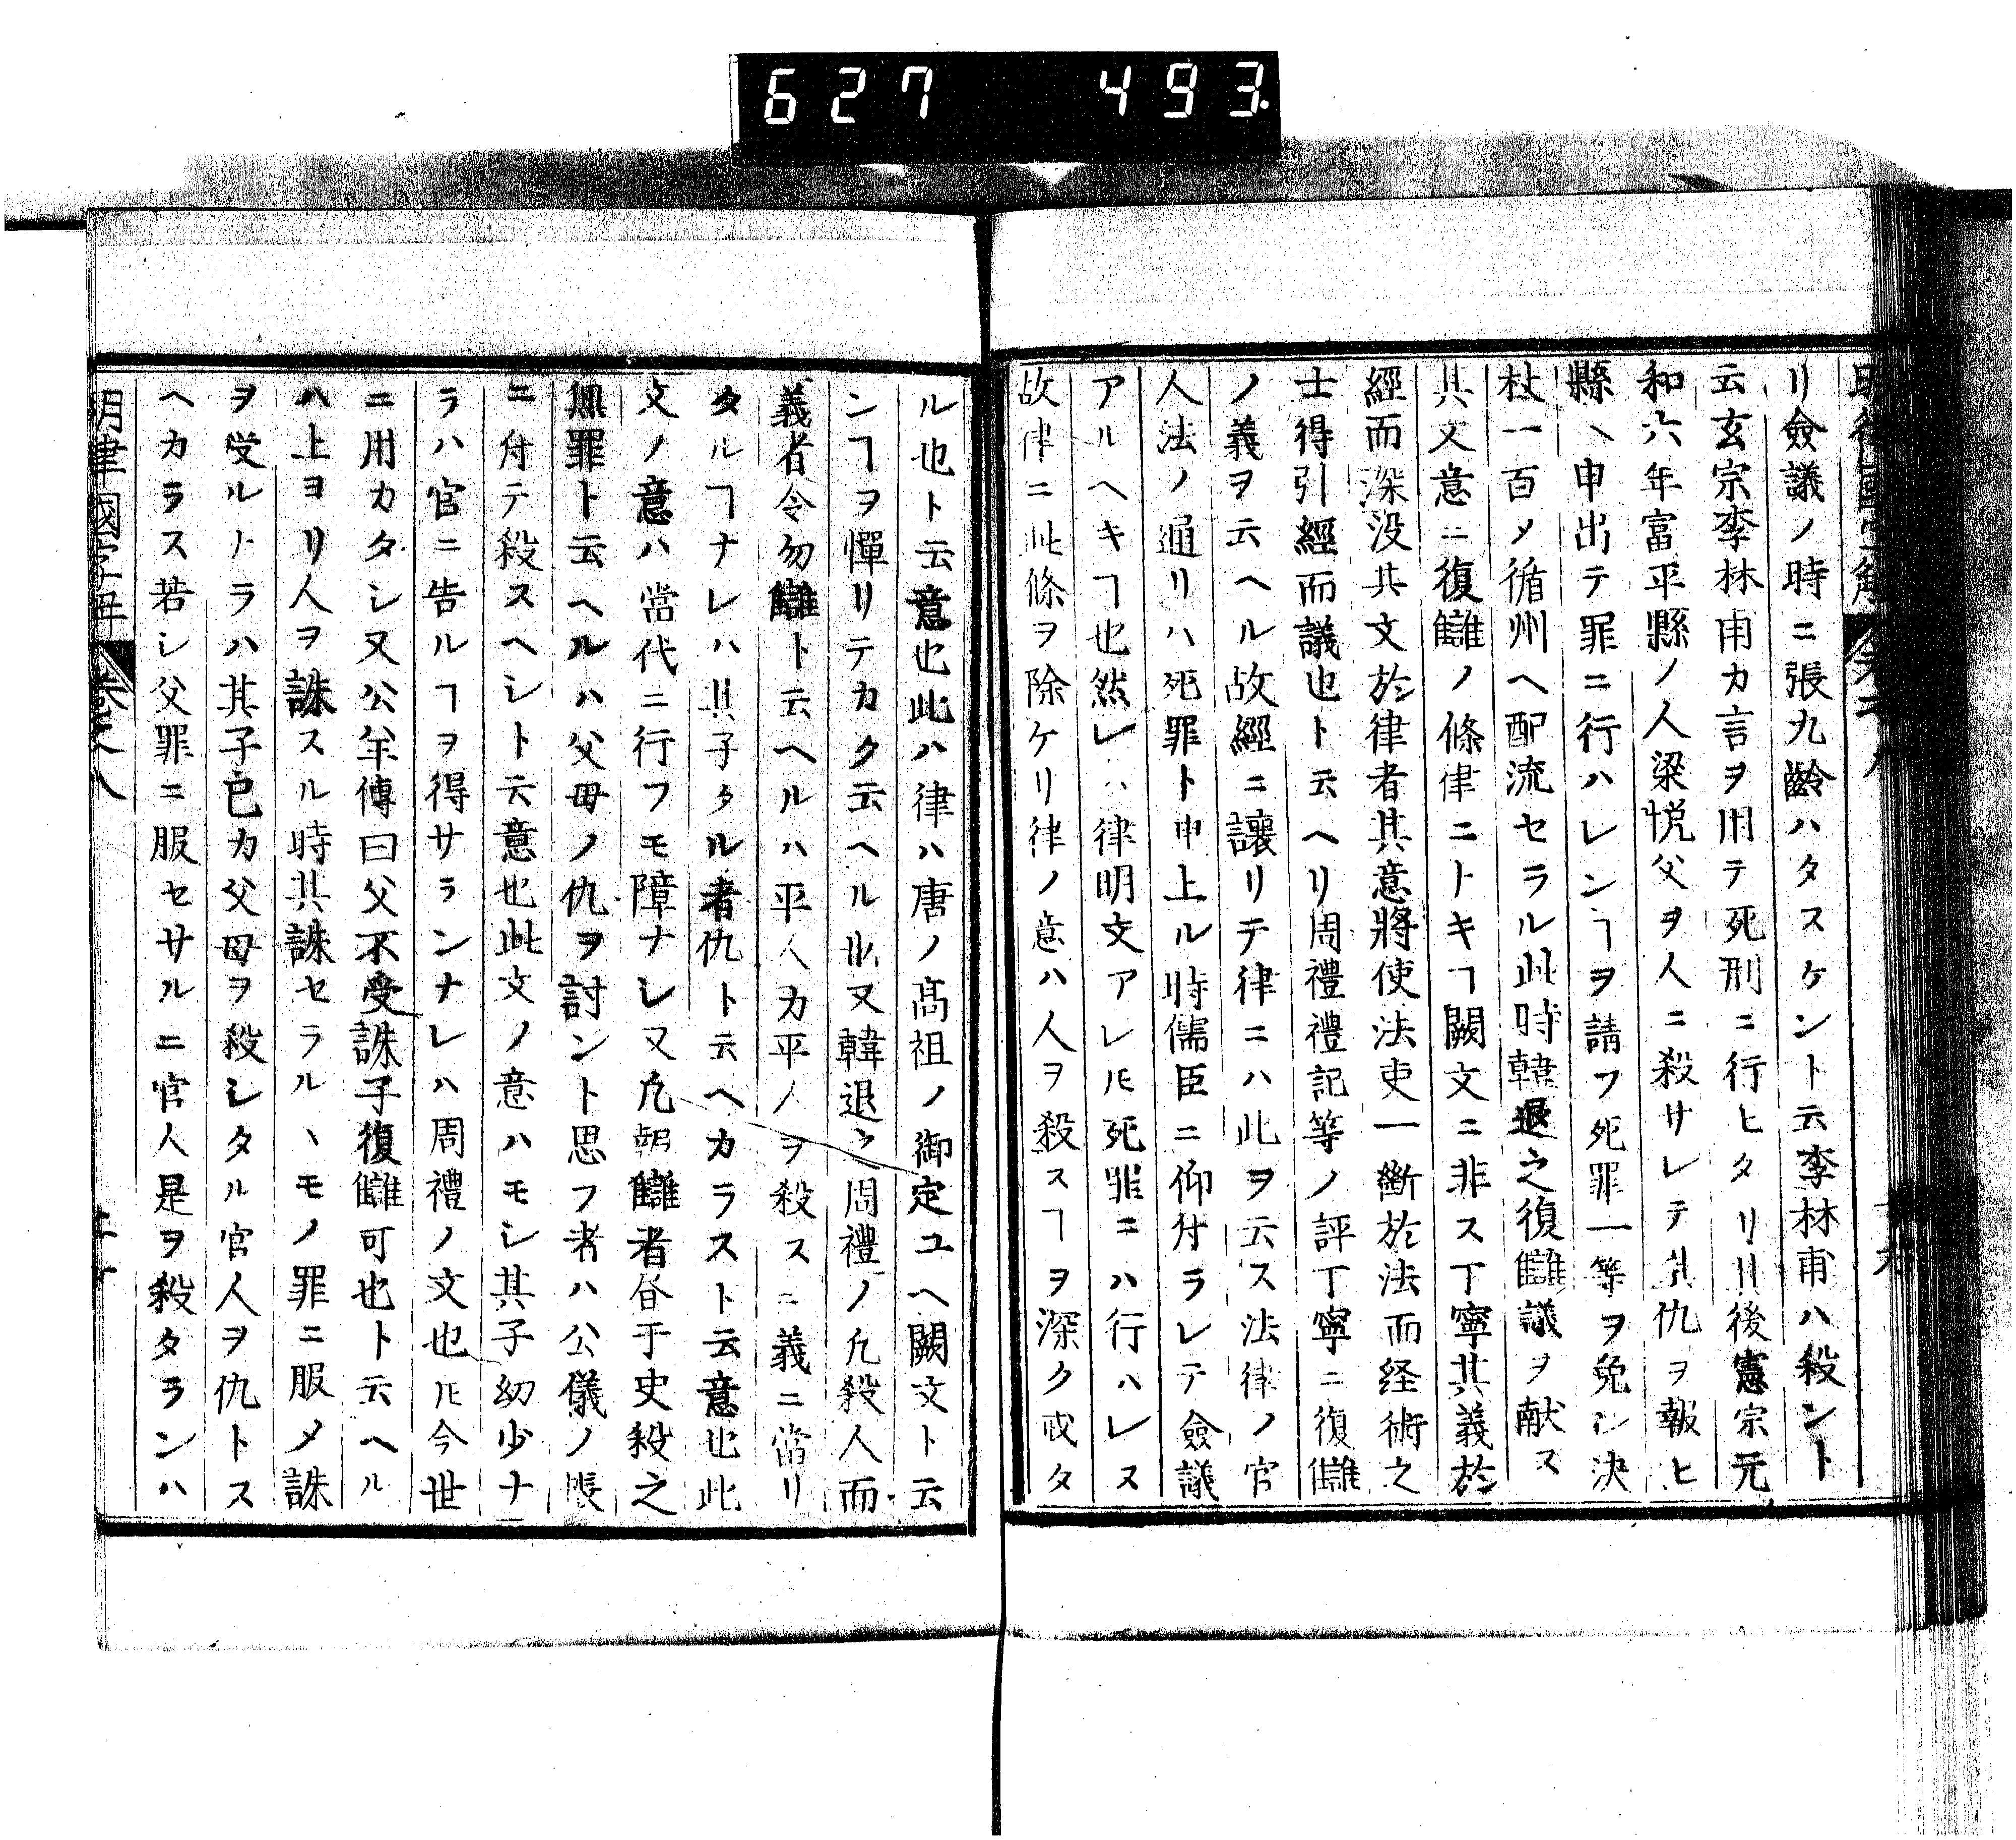 627 493
明律國字解 卷之八
リ僉議ノ時ニ張九齡ハタスケント云李林甫ハ殺ント
云玄宗李林甫カ言ヲ用テ死刑ニ行ヒタリ其後憲宗元
和六年富平縣ノ人梁悅父ヲ人ニ殺サレテ其仇ヲ報ヒ
縣ヘ申出テ罪ニ行ハレンヿヲ請フ死罪一等ヲ免シ決
杖一百メ循州ヘ配流セラル此時韓退之復讎議ヲ献ス
其文意ニ復讎ノ條律ニトキヿ闕文ニ非ス丁寧其義於
經而深没其文於律者其意將使法吏一斷於法而経術之
士得引經而議也ト云ヘリ周禮禮記等ノ評丁寧ニ復讎
ノ義ヲ云ヘル故經ニ讓リテ律ニハ此ヲ云ス法律ノ官
人法ノ通リハ死罪ト申上ル時儒臣ニ仰付ラレテ僉議
アルヘキヿ也然レハ律明文アレ𪜈死罪ニハ行ハレス
故律ニ此條ヲ除ケリ律ノ意ハ人ヲ殺スヿヲ深ク戒タ
ル也ト云意也此ハ律ハ唐ノ髙祖ノ御定ユヘ闕文ト云
ンヿヲ憚リテカク云ヘル𪜈又韓退之周禮ノ凡殺人而
義者令勿讎ト云ヘルハ平人カ平人ヲ殺スニ義ニ當リ
タルヿナレハ其子タル者仇ト云ヘカラスト云意也此
文ノ意ハ當代ニ行フモ障ナレ又凡報讎者昝于史殺之
無罪ト云ヘルハ父母ノ仇ヲ討ント思フ者ハ公儀ノ帳
ニ付テ殺スヘシト云意也此文ノ意ハモシ其子幼少ナ
ラハ官ニ告ルヿヲ得サランナレハ周禮ノ文也𪜈今世
ニ用カタシ又公羊傳曰父不受誅子復讎可也ト云ヘル
ハ上ヨリ人ヲ誅スル時其誅セラルヽモノ罪ニ服メ誅
ヲ受ルトラハ其子己カ父母ヲ殺シタル官人ヲ仇トス
ヘカラス若シ父罪ニ服セサルニ官人是ヲ殺タランハ
明律國字解 卷之八